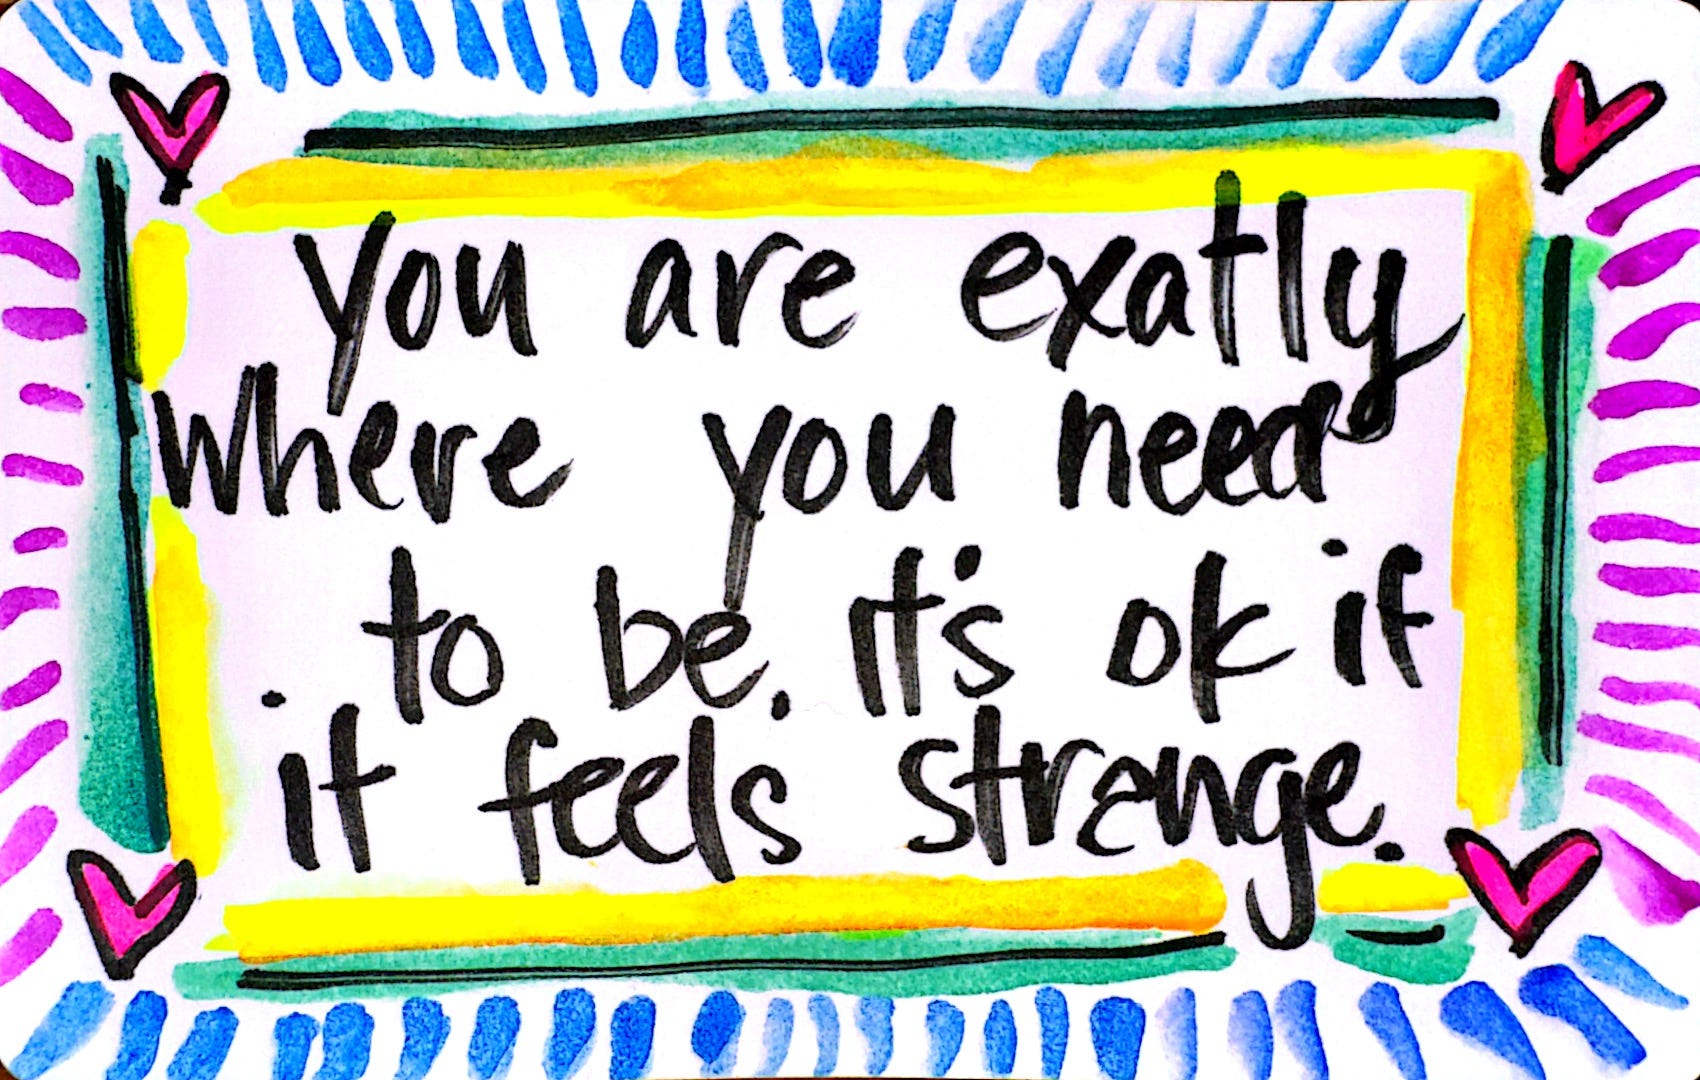 you are exatly
where you need
to be. it's ok if
it feels strange.